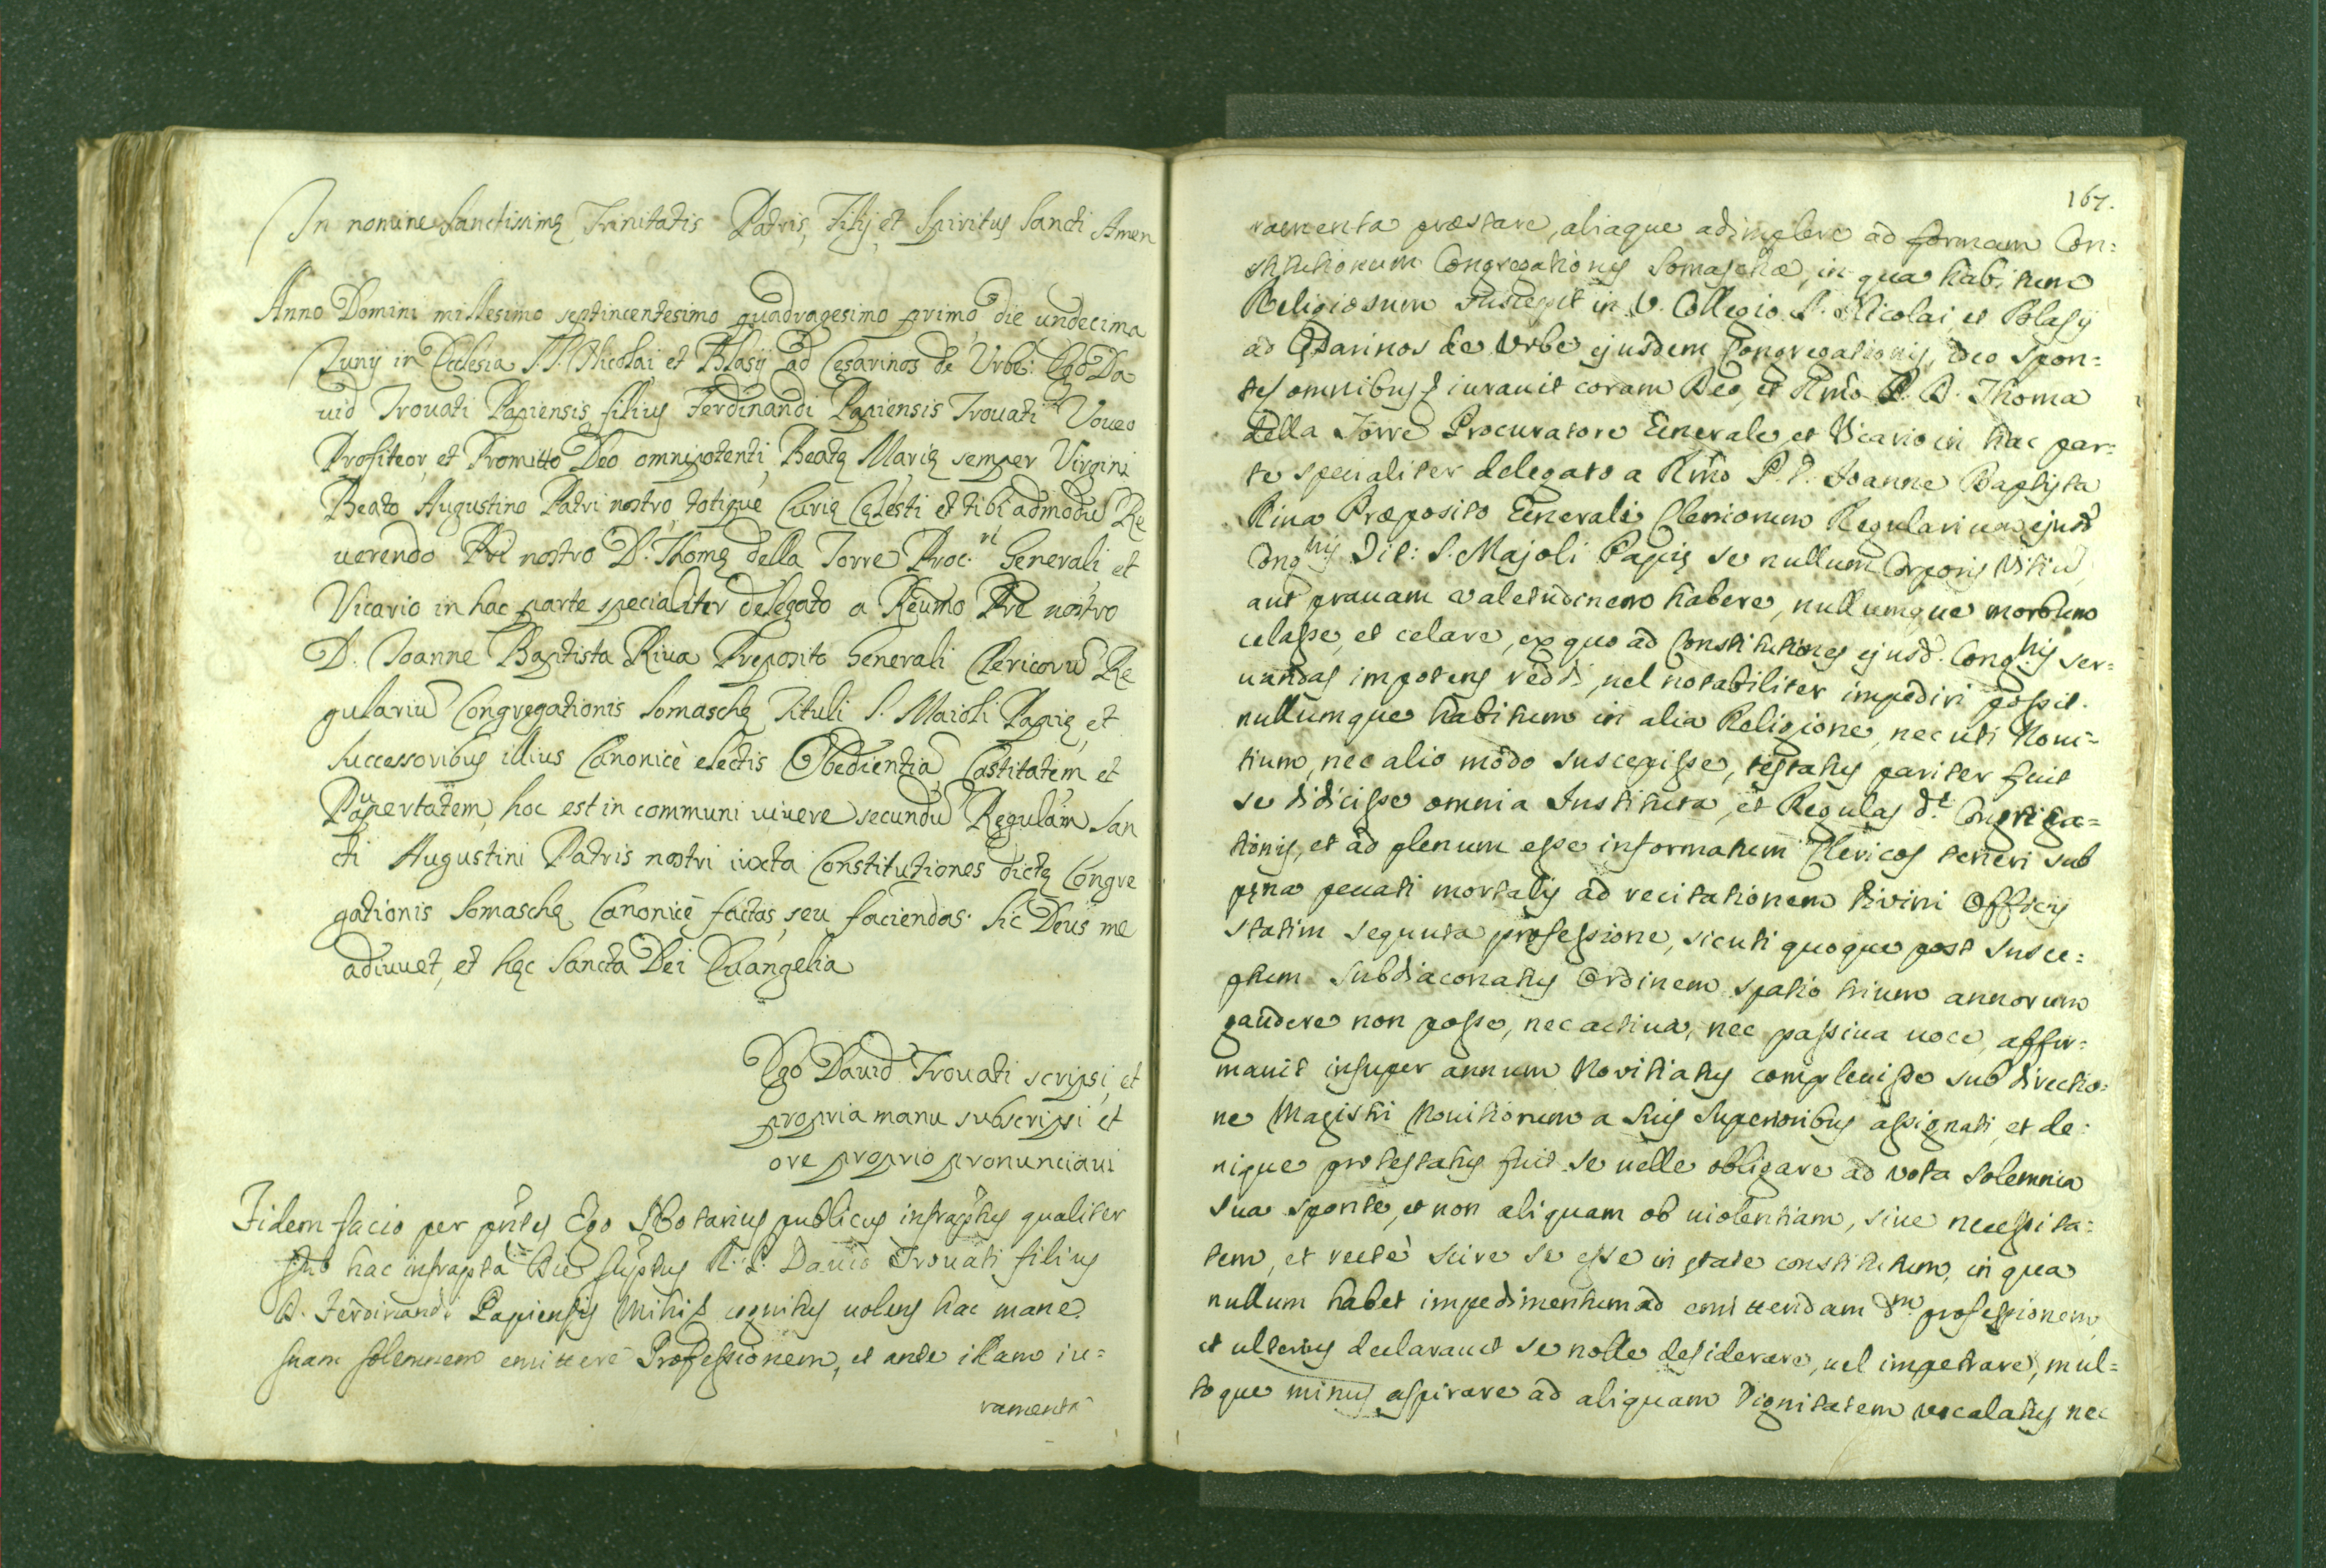 In nomine Sanctissimę Trinitatis Patris, Filij et Spiritus Sancti Amen
Anno Domini millesimo septincentesimo quadragesimo primo die undecima
Junij in Ecclesia SS. Nicolai et Blasij ad Cęsarinos de Urbe: Ego Da
uid Trouati Papiensis filius Ferdinandi Papiensis Trouati Voueo
Profiteor, et Promitto Deo omnipotenti, Beatę Marię semper Virgini
Beato Augustino Patri nostro totique Curię Cęlesti et tibi admodũ Re
uerendo Pri nostro D. Thomę della Torre Proc.ri Generali, et
Vicario in hac parte specialiter delegato a Reumo Pre nostro
D. Joanne Baptista Riua Preposito Generali Clericorũ Re
gulariũ Congregationis Somaschę Tituli S. Maioli Papię, et
Successoribus illius Canonicè electis Obedientiã, Castitatem et
Paupertatem, hoc est in communi uiuere secundũ Regulam San
cti Augustini Patris nostri iuxta Constitutiones dictę Congre
gationis Somaschę Canonicè factas, seu faciendas. Sic Deus me
adiuuet, et hęc Sancta Dei Euangelia
Ego Dauid Trouati scripsi, et
propria manu subscripsi et
ore proprio pronunciaui
Fidem facio per pñtes Ego Notarius publicus infraptus qualiter
hac infrapta Die suptus R. D. Dauid Trouati filius
D. Ferdinandi Papiensis mihi cognitus uolens hac mane
suam solemnem emittere Professionem, et ante illam iu=
ramenta
167.
ramenta præstare, aliaque adimplere ad formam Con=
stitutionum Congregationis Somaschæ, in qua habitum
Religiosum suscepit in V. Collegio S. Nicolai, et Blasij
ad Cęsarinos de Urbe ejusdem Congregationis, ideo spon=
te omnibus iurauit coram Deo, et Rmo P. D. Thoma
della Torre Procuratore Generale, et Vicario in hac par=
te specialiter delegato a Rmo P. D. Joanne Baptista
Riua Præposito Generali Clericorum Regularium ejusd
Cong.nis Tit: S. Majoli Papię se nullum Corporis Vitiũ,
aut prauam ualetudinem habere, nullumque morbum
celasse, et celare, ex quo ad Constitutiones ejusd. Cong.nis ser=
uandas impotens reddi, uel notabiliter impediri possit.
nullumque habitum in alia Religione, nec uti Noui=
tium, nec alio modo suscepisse, testatus pariter fuit
se didicisse omnia Instituta, et Regulas d.æ Congrega=
tionis, et ad plenum esse informatum Clericos teneri sub
pęna peccati mortalis ad recitationem diuini Officij
statim sequuta professione, sicuti quoque post susce=
ptum Subdiaconatus Ordinem spatio trium annorum
gaudere non posse, nec actiua, nec passiua uoce, affir=
mauit insuper annum Novitiatus compleuisse sub directio=
ne Magistri Nouitiorum a suis Superioribus assignati, et de=
nique protestatus fuit se uelle obligare ad vota solemnia
sua sponte, et non aliquam ob uiolentiam, siue necessita=
tem, et rectè scire se esse in ętate constitutum, in qua
nullum habet impedimentum ad emittendam d.m professionem,
et ulterius declarauit se nolle desiderare, uel impetrare, mul=
toque minus aspirare ad aliquam Dignitatem vocalatus, nec